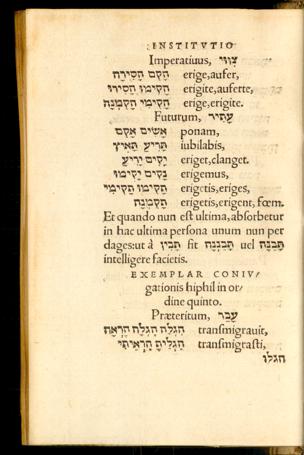 INSTITVTIO
Imperatiuus, צִוּוּי
הָקֵם הָסֵירָה erige,aufer,
הָקִימוּ הָסִירוּ erigite,auferte,
הָקִימִי הָקֵמְנָה erige,erigite.
Futurum, עָתִיד
אָשִׂים אָקֵם ponam,
תָּרִיעַ iubilabis,
יָקִים יָרִיעַ eriget,clanget.
נָקִים יָקִימוּ erigemus,
תָּקִימוּ תָּקִימִי erigetis,eriges,
תָּקֵמְנָה erigetis,erigent, fœm.
Et quando nun est ultima,absorbetur
in hac ultima persona unum nun per
dages:ut à תָּבִין fit תָּבֵנְנָה uel תָּבֵנָּה
intelligere facietis.
EXEMPLAR CONIV/
gationis hiphil in or/
dine quinto.
Præteritum, עָבַר
הִגְלָה הֶגְלָה transmigrauit,
הִגְלִיתָ הִרְאִיתִי transmigrasti,
הגלו